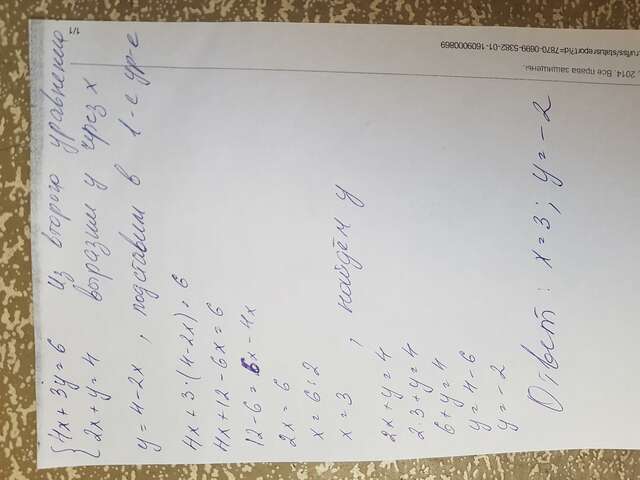 {4x + 3y = 6 Из второго уравнению
2x + y = 4 выразим y через x
y = 4 - 2x, подставим в 1-е ур-е
4x + 3·(4-2x) = 6
4x + 12 - 6x = 6
12 - 6 = 6x - 4x
2x = 6
x = 6:2
x = 3, найдём y
2x + y = 4
2·3 + y = 4
6 + y = 4
y = 4 - 6
y = -2
Ответ: x = 3; y = -2
, 2014. Все права защищены.
ru/tss/statusreport?id=7870-0699-5382-01-1609000869
1/1